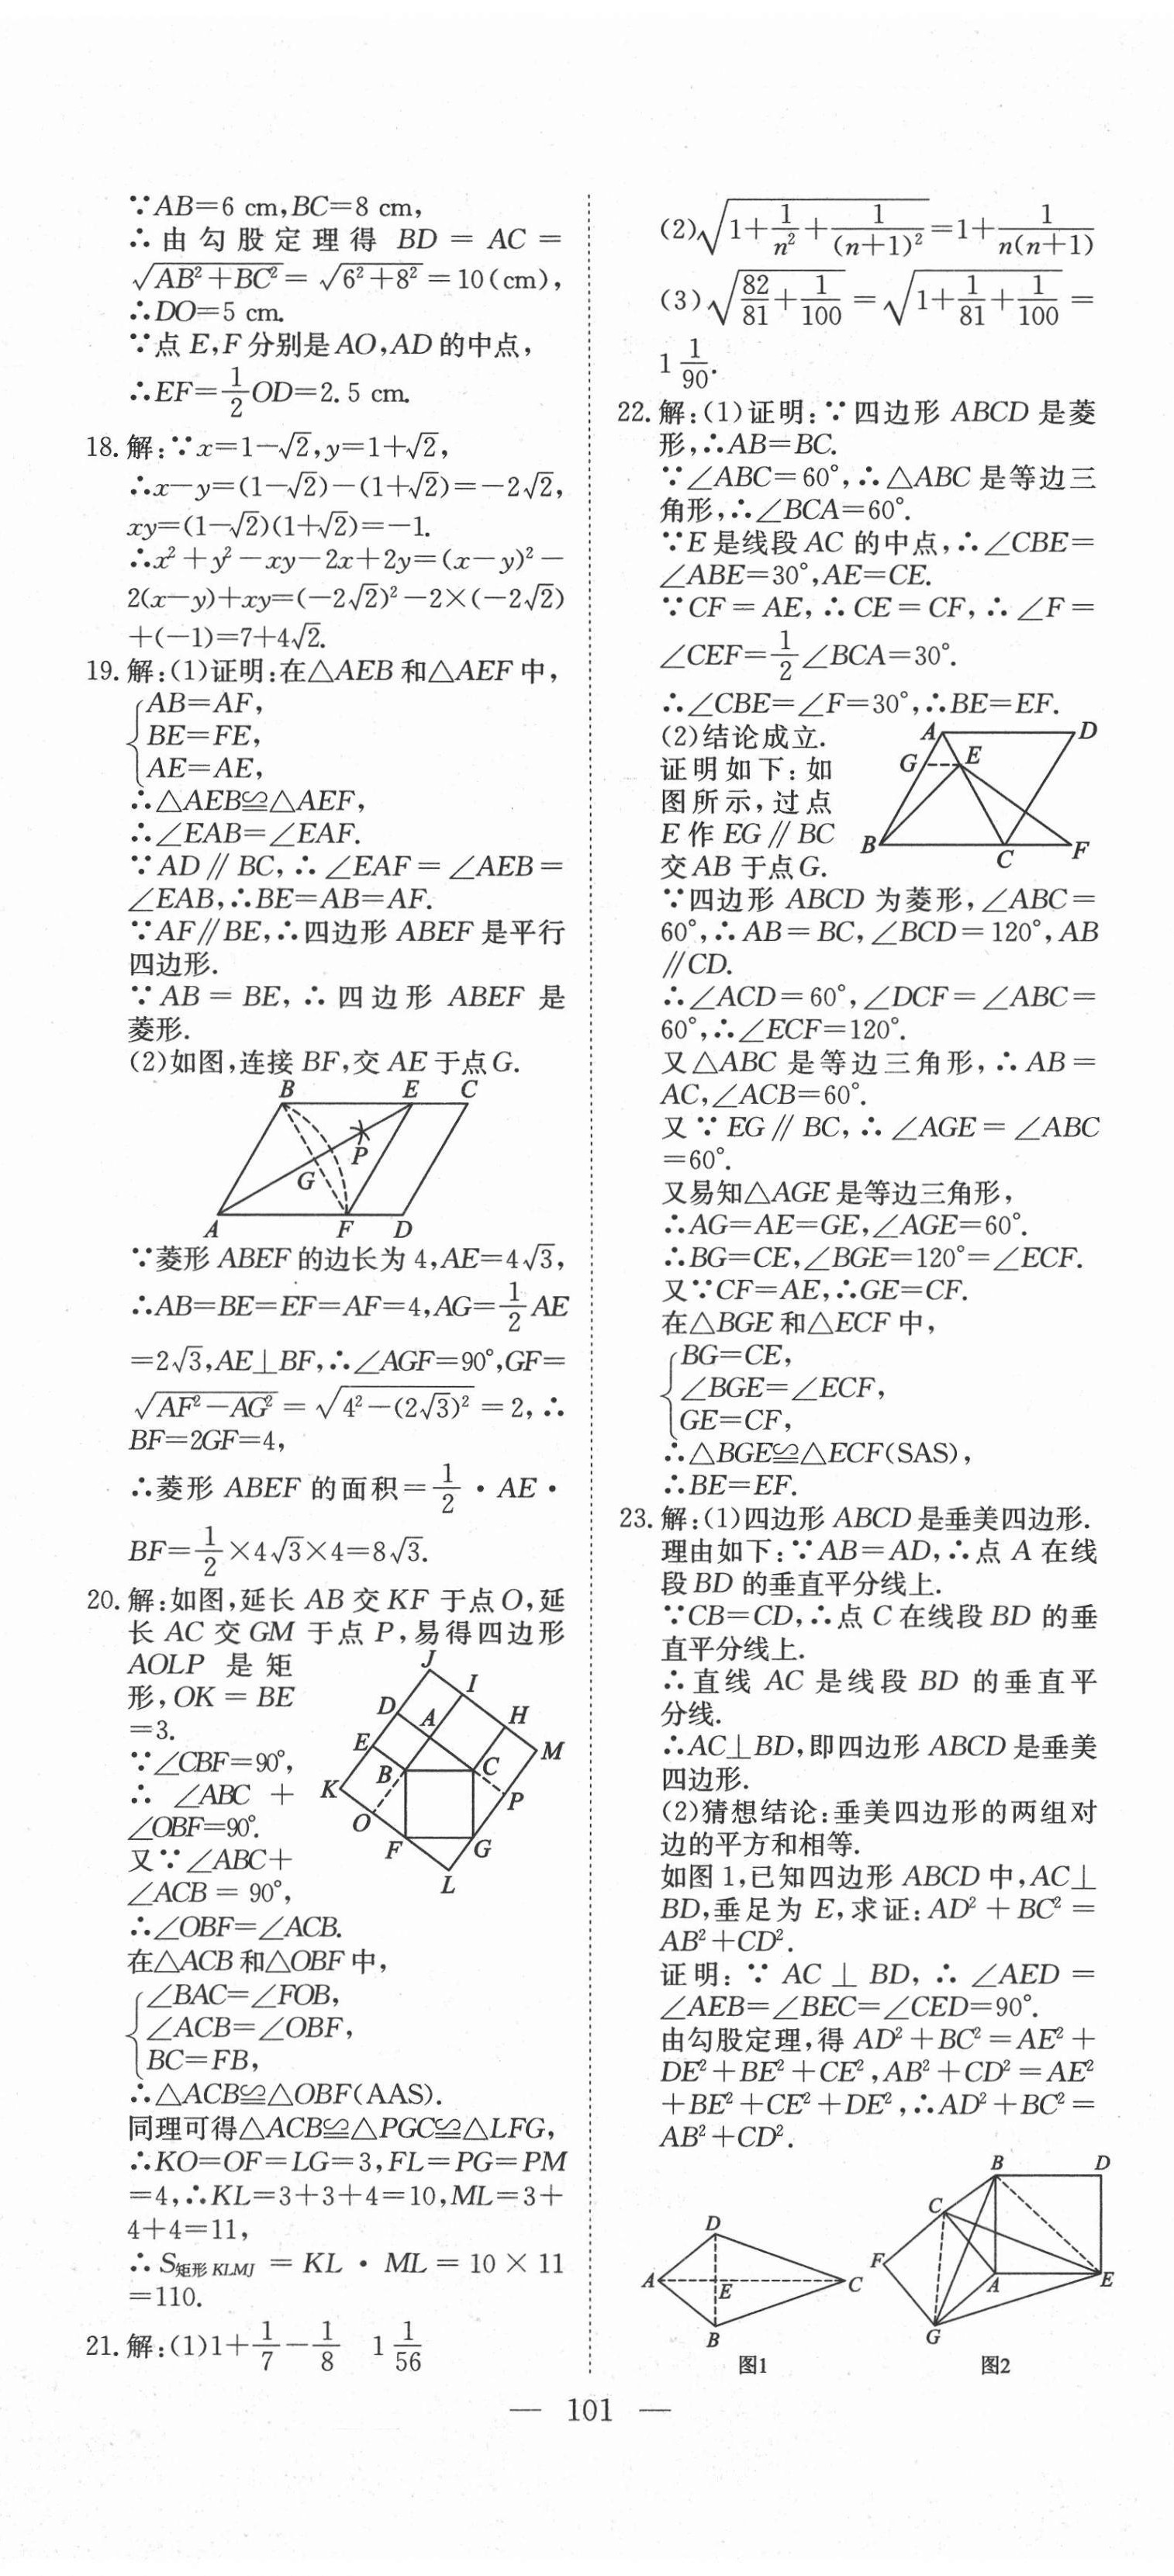 ∵AB=6 cm,BC=8 cm,
∴由勾股定理得 BD = AC =
√(AB²+BC²) = √(6²+8²) =10(cm),
∴DO=5 cm.
∵点E,F分别是AO,AD的中点,
∴EF=1/2 OD=2.5 cm.
18. 解:∵x=1-√2,y=1+√2,
∴x-y=(1-√2)-(1+√2)=-2√2,
xy=(1-√2)(1+√2)=-1.
∴x²+y²-xy-2x+2y=(x-y)²-
2(x-y)+xy=(-2√2)²-2×(-2√2)
+(-1)=7+4√2.
19. 解:(1)证明:在△AEB和△AEF中,
{AB=AF,
BE=FE,
AE=AE,
∴△AEB≌△AEF,
∴∠EAB=∠EAF.
∵AD∥BC,∴∠EAF=∠AEB=
∠EAB,∴BE=AB=AF.
∵AF∥BE,∴四边形ABEF是平行
四边形.
∵AB=BE,∴四边形ABEF是
菱形.
(2)如图,连接BF,交AE于点G.
B E C
P
G
A F D
∵菱形ABEF的边长为4,AE=4√3,
∴AB=BE=EF=AF=4,AG=1/2 AE
=2√3,AE⊥BF,∴∠AGF=90°,GF=
√(AF²-AG²) = √(4²-(2√3)²) =2,∴
BF=2GF=4,
∴菱形ABEF的面积=1/2·AE·
BF=1/2×4√3×4=8√3.
20. 解:如图,延长AB交KF于点O,延
长AC交GM于点P,易得四边形
AOLP是矩
形,OK=BE
=3.
∵∠CBF=90°,
∴∠ABC+
∠OBF=90°.
又∵∠ABC+
∠ACB=90°,
J
I
D A H
E M
B C
K P
O
F G
L
∴∠OBF=∠ACB.
在△ACB和△OBF中,
{∠BAC=∠FOB,
∠ACB=∠OBF,
BC=FB,
∴△ACB≌△OBF(AAS).
同理可得△ACB≌△PGC≌△LFG,
∴KO=OF=LG=3,FL=PG=PM
=4,∴KL=3+3+4=10,ML=3+
4+4=11,
∴S矩形KLMJ=KL·ML=10×11
=110.
21. 解:(1)1+1/7-1/8 1 1/56
(2)√(1+1/n²+1/(n+1)²)=1+1/(n(n+1))
(3)√(82/81+1/100)=√(1+1/81+1/100)=
1 1/90.
22. 解:(1)证明:∵四边形ABCD是菱
形,∴AB=BC.
∵∠ABC=60°,∴△ABC是等边三
角形,∴∠BCA=60°.
∵E是线段AC的中点,∴∠CBE=
∠ABE=30°,AE=CE.
∵CF=AE,∴CE=CF,∴∠F=
∠CEF=1/2∠BCA=30°.
∴∠CBE=∠F=30°,∴BE=EF.
(2)结论成立.
证明如下:如
图所示,过点
E作EG∥BC
交AB于点G.
A D
G E
B C F
∵四边形ABCD为菱形,∠ABC=
60°,∴AB=BC,∠BCD=120°,AB
∥CD.
∴∠ACD=60°,∠DCF=∠ABC=
60°,∴∠ECF=120°.
又△ABC是等边三角形,∴AB=
AC,∠ACB=60°.
又∵EG∥BC,∴∠AGE=∠ABC
=60°.
又易知△AGE是等边三角形,
∴AG=AE=GE,∠AGE=60°.
∴BG=CE,∠BGE=120°=∠ECF.
又∵CF=AE,∴GE=CF.
在△BGE和△ECF中,
{BG=CE,
∠BGE=∠ECF,
GE=CF,
∴△BGE≌△ECF(SAS),
∴BE=EF.
23. 解:(1)四边形ABCD是垂美四边形.
理由如下:∵AB=AD,∴点A在线
段BD的垂直平分线上.
∵CB=CD,∴点C在线段BD的垂
直平分线上.
∴直线AC是线段BD的垂直平
分线.
∴AC⊥BD,即四边形ABCD是垂美
四边形.
(2)猜想结论:垂美四边形的两组对
边的平方和相等.
如图1,已知四边形ABCD中,AC⊥
BD,垂足为E,求证:AD²+BC²=
AB²+CD².
证明:∵AC⊥BD,∴∠AED=
∠AEB=∠BEC=∠CED=90°.
由勾股定理,得AD²+BC²=AE²+
DE²+BE²+CE²,AB²+CD²=AE²
+BE²+CE²+DE²,∴AD²+BC²=
AB²+CD².
D
A E C
B
图1
B D
C
F
A E
G
图2
— 101 —